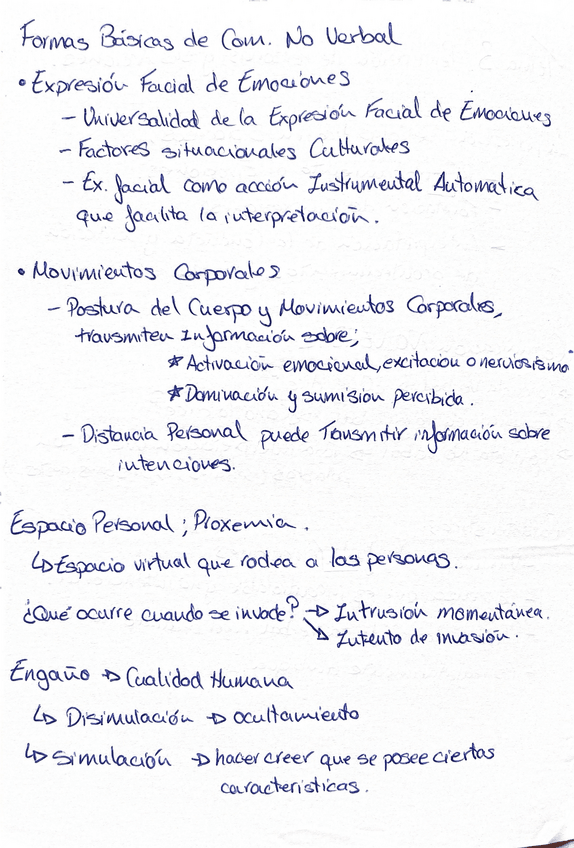 Formas Básicas de Com. No Verbal
• Expresión Facial de Emociones
– Universalidad de la Expresión Facial de Emociones
– Factores situacionales Culturales
– Ex. facial como acción Instrumental Automatica
que facilita la interpretación.
• Movimientos Corporales
– Postura del Cuerpo y Movimientos Corporales,
transmiten Información sobre;
* Activación emocional, excitacion o nerviosismo
* Dominación y sumision percibida.
– Distancia Personal puede Transmitir información sobre
intenciones.
Espacio Personal ; Proxemia.
↳ Espacio virtual que rodea a las personas.
¿Qué ocurre cuando se invade? → Intrusión momentánea.
↘ Intento de invasión.
Engaño → Cualidad Humana
↳ Disimulación → ocultamiento
↳ Simulación → hacer creer que se posee ciertas
caracteristicas.